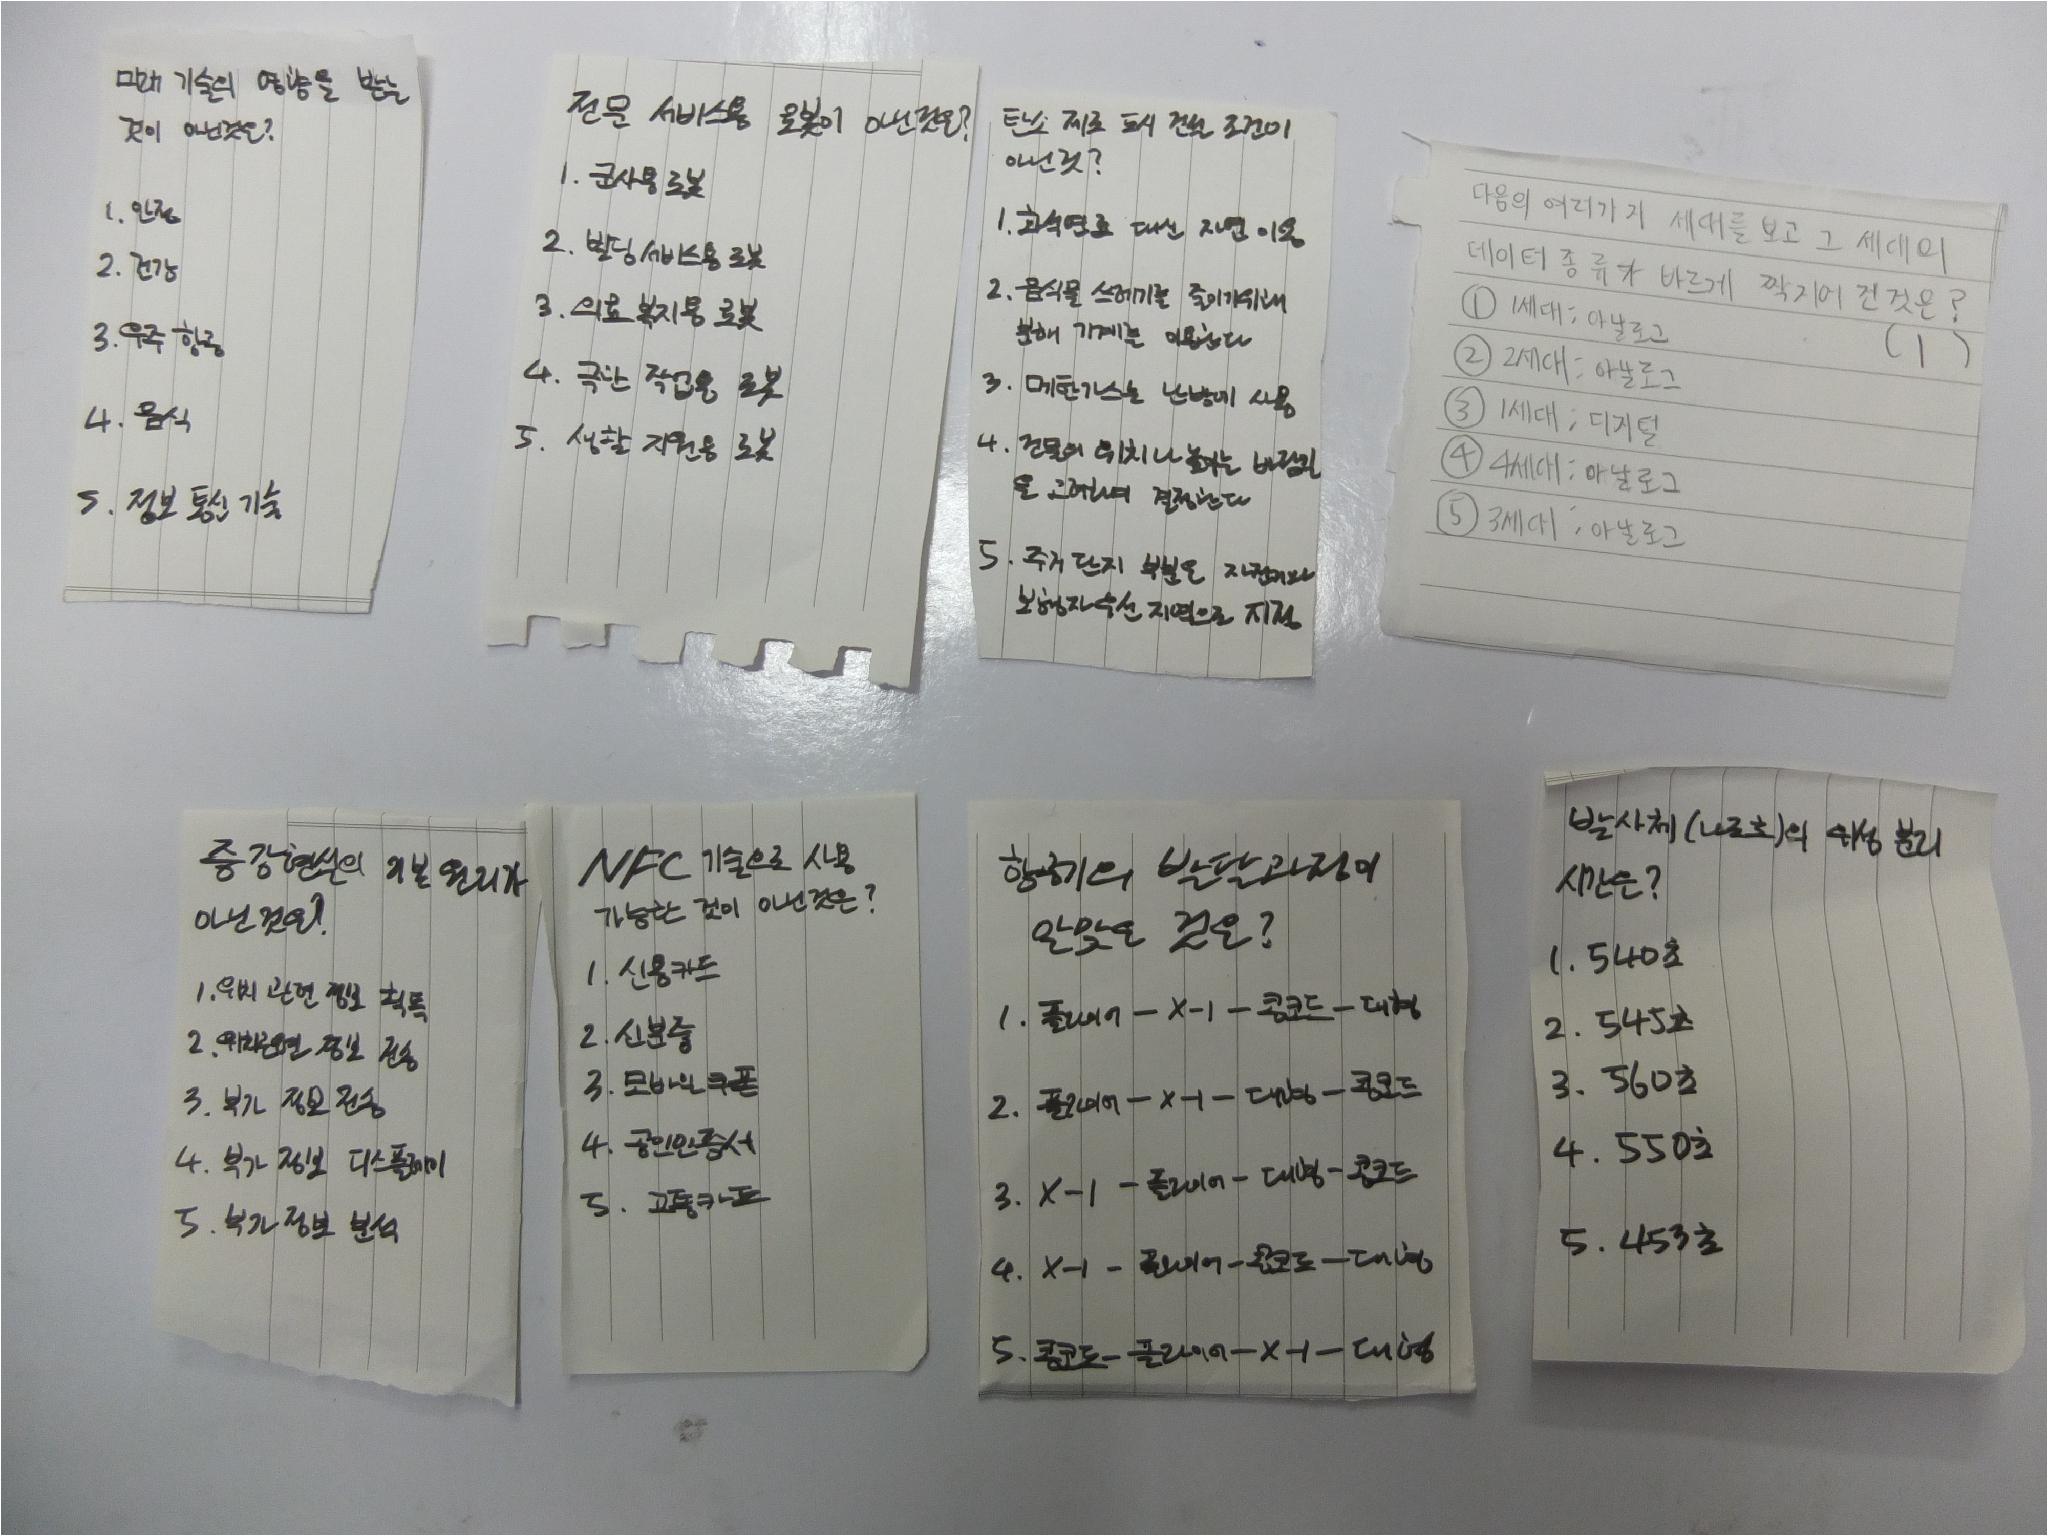 미래 기술의 영향을 받는
것이 아닌것은?
1. 안전
2. 건강
3. 우주 항공
4. 음식
5. 정보 통신 기술
전문 서비스용 로봇이 아닌것은?
1. 군사용 로봇
2. 빌딩 서비스용 로봇
3. 의료 복지용 로봇
4. 극한 작업용 로봇
5. 생활 지원용 로봇
탄소 제로 도시 건설 조건이
아닌것?
1. 화석연료 대신 자연 이용
2. 음식물 쓰레기를 줄이기위해
분해 기계를 이용한다
3. 메탄가스는 난방에 사용
4. 건물의 위치나 높이는 바람길
을 고려하여 결정한다
5. 주거 단지 부분은 자전거와
보행자 우선 지역으로 지정
다음의 여러가지 세대를 보고 그 세대의
데이터 종류가 바르게 짝지어 진것은?
( 1 )
① 1세대; 아날로그
② 2세대; 아날로그
③ 1세대; 디지털
④ 4세대; 아날로그
⑤ 3세대; 아날로그
증강현실의 기본 원리가
아닌것은?
1. 위치 관련 정보 획득
2. 위치관련 정보 전송
3. 부가 정보 전송
4. 부가 정보 디스플레이
5. 부가 정보 분석
NFC 기술으로 사용
가능한 것이 아닌것은?
1. 신용카드
2. 신분증
3. 모바일 쿠폰
4. 공인인증서
5. 교통카드
항공기의 발달과정이
알맞은 것은?
1. 플라이어 - X-1 - 콩코드 - 대형
2. 플라이어 - X-1 - 대형 - 콩코드
3. X-1 - 플라이어 - 대형 - 콩코드
4. X-1 - 플라이어 - 콩코드 - 대형
5. 콩코드 - 플라이어 - X-1 - 대형
발사체(나로호)의 위성 분리
시간은?
1. 540초
2. 545초
3. 560초
4. 550초
5. 453초